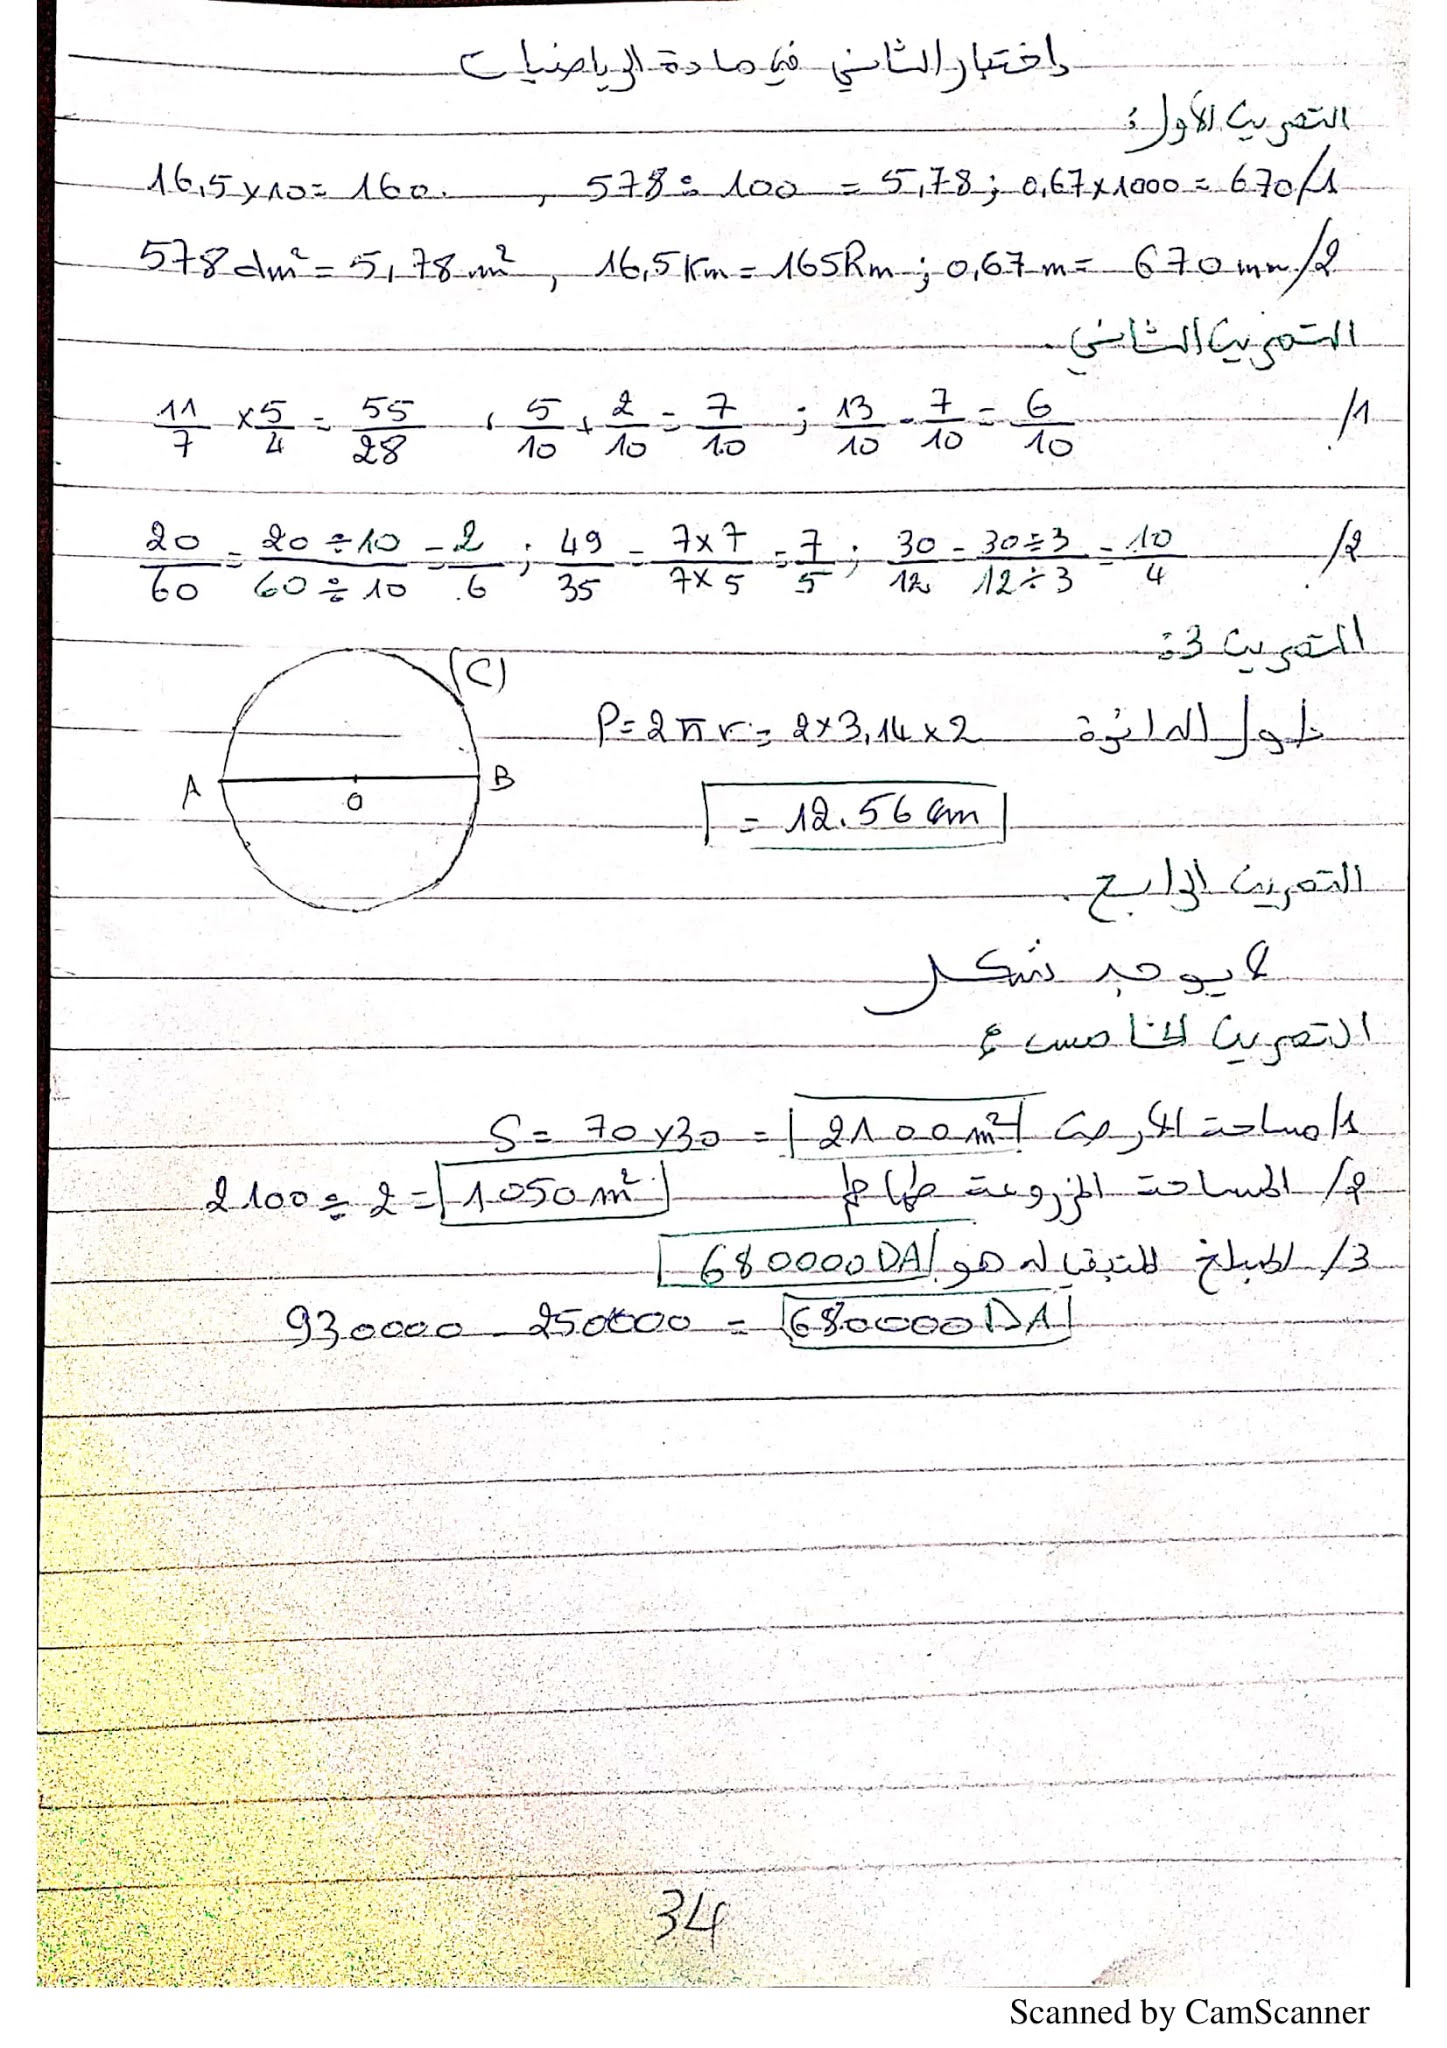 إختبار الثاني في مادة الرياضيات
التمرين الأول:
16,5 × 10 = 160. , 578 ÷ 100 = 5,78 ; 0,67 × 1000 = 670 /1
578 dm² = 5,78 m² , 16,5 Km = 165 hm ; 0,67 m = 670 mm /2
التمرين الثاني.
11/7 × 5/4 = 55/28 , 5/10 + 2/10 = 7/10 ; 13/10 - 7/10 = 6/10 /1
20/60 = 20÷10/60÷10 = 2/6 ; 49/35 = 7×7/7×5 = 7/5 ; 30/12 = 30÷3/12÷3 = 10/4 /2
التمرين 3:
(C)
طول الدائرة P = 2πr = 2 × 3,14 × 2
A O B
= 12.56 cm
التمرين الرابع.
لا يوجد شكل
التمرين الخامس:
1/ مساحة الأرض S = 70 × 30 = 2100 m²
2/ المساحة المزروعة طماطم 2100 ÷ 2 = 1050 m²
3/ المبلغ المتبقي له هو 680000 DA
930000 - 250000 = 680000 DA
34
Scanned by CamScanner